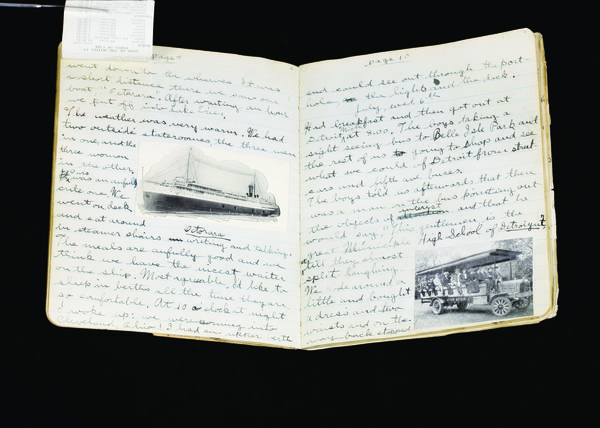 Page 9
went down to the wharves. It was
a short distance there we saw our
boat "Octorara." After waiting an hour
we got off into Lake Erie.
The weather was very warm. We had
two outside staterooms the three men
in one and the
three women
in the other.
It was an awfully
nice one. We
went on deck
and sat around
in steamer chairs writing and talking.
Octorara
The meals are awfully good and we
think we have the nicest waiter
on the ship. Most agreeable. I'd like to
sleep in berths all the time they are
so comfortable. At 10 o'clock at night
I woke up; we were coming into
Cleveland, Ohio. I had an upper berth
Page 10
and could see out through the port-
hole the lights and the dock.
July, 6th
Had breakfast and then got out at
Detroit at 8:00. The boys taking a
sight seeing bus to Belle Isle Park and
the rest of us going to shops and see
what we could of Detroit from street
cars and fifth ave. buses.
The boys told us afterwards that there
was a man on the bus pointing out
the objects of interest and that he
would say, "This gentlemen is the
great
High School of Detroit,"
till they almost
split laughing.
We
around a
little and bought
a dress and two
waists and on the
way back stopped